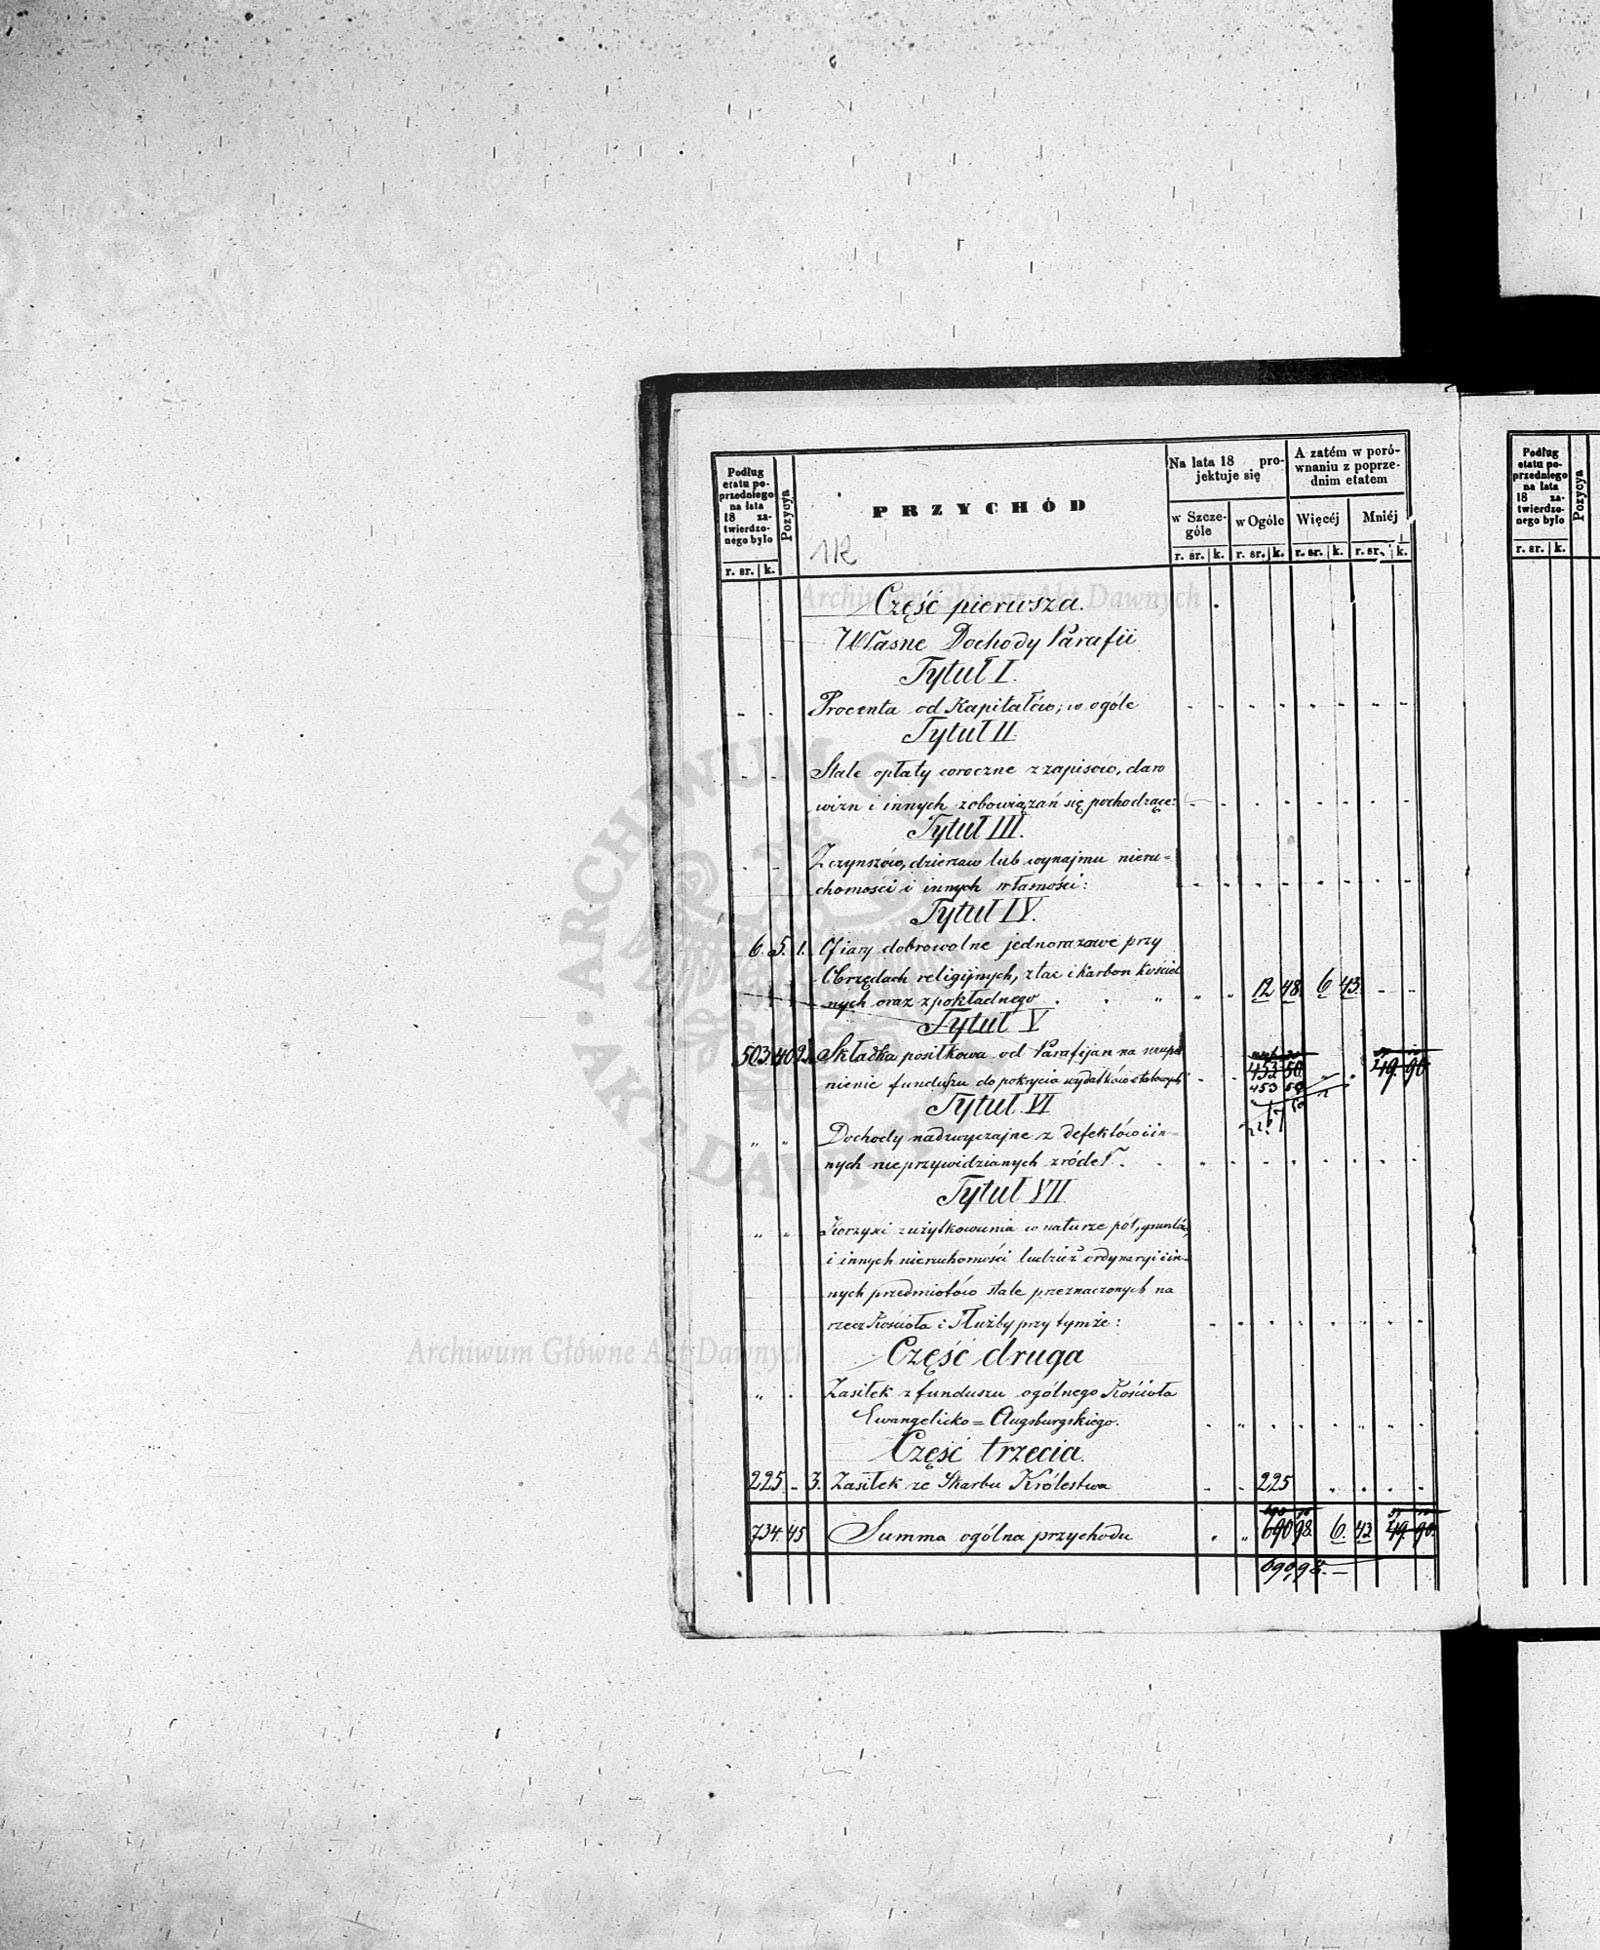 Podług
etatu po-
przedniego
na lata
18 za-
twierdzo-
nego było
r. sr. k.
Pozycya
PRZYCHÓD
112
Na lata 18 pro-
jektuje się
w Szcze-
góle
r. sr. k.
w Ogóle
r. sr. k.
A zatém w poró-
wnaniu z poprze-
dnim etatem
Więcéj
r. sr. k.
Mniéj
r. sr. k.
Część pierwsza.
Własne Dochody Parafii
Tytuł I.
Procenta od Kapitałów; w ogóle
Tytuł II
Stałe opłaty coroczne z zapisów, daro
wizn i innych zobowiązań się pochodzące:
Tytuł III.
Z czynszów, dzierzaw lub wynajmu nieru-
chomości i innych własności:
Tytuł IV.
6. 5. 1. Ofiary dobrowolne jednorazowe przy
Obrzędach religijnych, z tac i karbon kościel
nych oraz z pokładnego 12 48 6 43.
Tytuł V
503. 40 2. Składka posiłkowa od Parafijan na uzupeł
nienie funduszu do pokrycia wydatków etatowych 453 50 49 90
453 50
Tytuł VI
Dochody nadzwyczajne z defektów i in-
nych nieprzywidzianych źródeł.
Tytuł VII
Korzyści z użytkowania w naturze pól, gruntów,
i innych nieruchomości tudzież ordynaryi i in-
nych przedmiotów stale przeznaczonych na
rzecz Kościoła i Służby przy tymże:
Część druga
Zasiłek z funduszu ogólnego Kościoła
Ewangelicko=Augsburgskiego.
Część trzecia.
225. 3. Zasiłek ze Skarbu Królestwa 225
734. 45 Summa ogólna przychodu 690 98. 6. 43 49 90.
690,98.
Podług
etatu po-
przedniego
na lata
18 za-
twierdzo-
nego było
r. sr. k.
Pozycya
ARCHIWUM GŁÓWNE AKT DAWNYCH
Archiwum Główne Akt Dawnych
Archiwum Główne Akt Dawnych